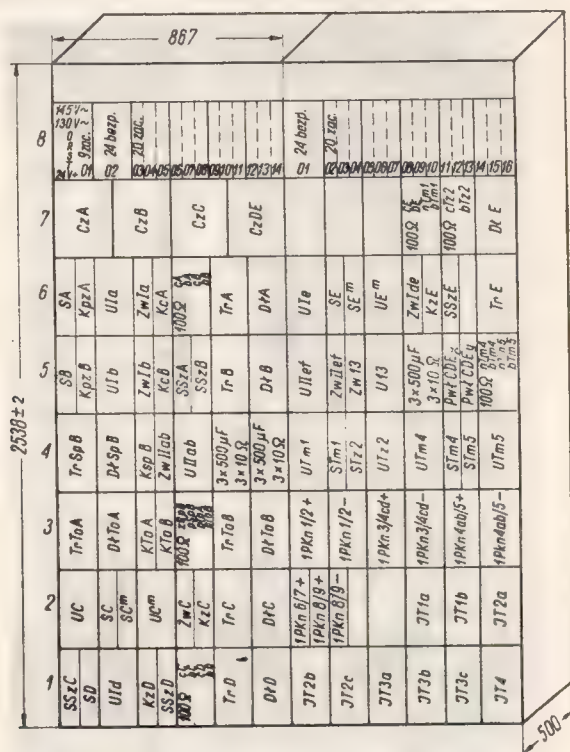 867
2538±2
500
8
145V~
130V~
24V=
01 9 zac.
02 24 bezp.
03 04 05 20 zac.
06 07 08 09 10 11 12 13 14
01 24 bezp.
02 03 04 20 zac.
05 06 07 08 09 10 11 12 13 14 15 16
7
CzA
CzB
CzC
CzDE
100Ω
nTm1
bTm1
100Ω cTz2
bTz2
DŁE
6
SA
KpzA
UIa
ZwIa
KcA
100Ω
TrA
DŁA
UIe
SE
SEᵐ
UEᵐ
ZwIde
KzE
SSzE
TrE
5
SB
KpzB
UIb
ZwIb
KcB
SSzA
SSzB
TrB
DŁB
UIIef
ZwIIef
Zw13
U13
3×500μF
3×10Ω
PwŁCDEx
PwŁCDEy
100Ω
bTm5
4
TrSpB
DŁSpB
KspB
ZwIIab
UIIab
3×500μF
3×10Ω
3×500μF
3×10Ω
UTm1
STm1
STz2
UTz2
UTm4
STm4
STm5
UTm5
3
TrToA
DŁToA
KToA
KToB
100Ω
TrToB
DŁToB
1PKn1/2+
1PKn1/2−
1PKn3/4cd+
1PKn3/4cd−
1PKn4ab/5+
1PKn4ab/5−
2
UC
SC
SCᵐ
UCᵐ
ZwC
KzC
TrC
DŁC
1PKn6/7+
1PKn8/9+
1PKn8/9−
JT1a
JT1b
JT2a
1
SSzC
SD
UId
KzD
SSzD
100Ω
TrD
DŁD
JT2b
JT2c
JT3a
JT3b
JT3c
JT4